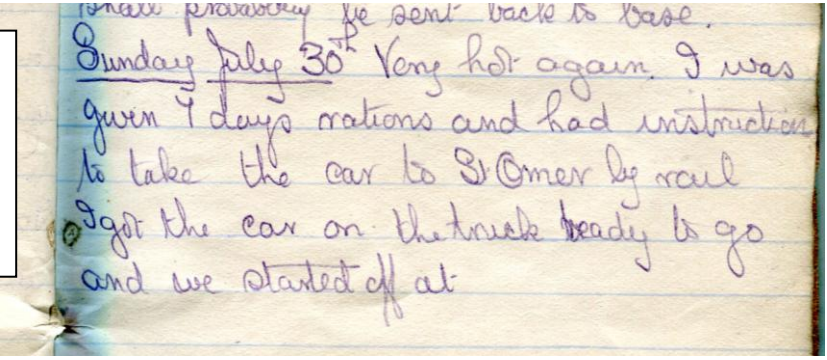 shall probably be sent back to base.
Sunday July 30th Very hot again. I was
given 7 days rations and had instruction
to take the car to St Omer by rail
I got the car on the truck ready to go
and we started off at